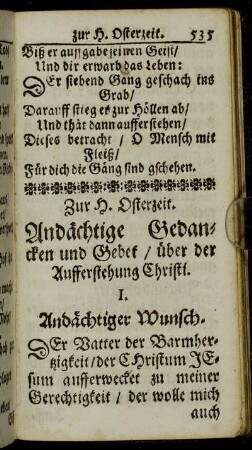 zur H. Osterzeit. 535
Biß er auffgabe seinen Geist/
Und dir erwarb das Leben:
DEr siebend Gang geschach ins
Grab/
Darauff stieg er zur Höllen ab/
Und thät dann aufferstehen/
Dieses betracht / O Mensch mit
Fleiß/
Für dich die Gäng sind gschehen.
Zur H. Osterzeit.
Andächtige Gedan-
cken und Gebet / über der
Aufferstehung Christi.
I.
Andächtiger Wunsch.
DEr Vatter der Barmher-
tzigkeit/der CHristum JE-
sum aufferwecket zu meiner
Gerechtigkeit / der wolle mich
auch